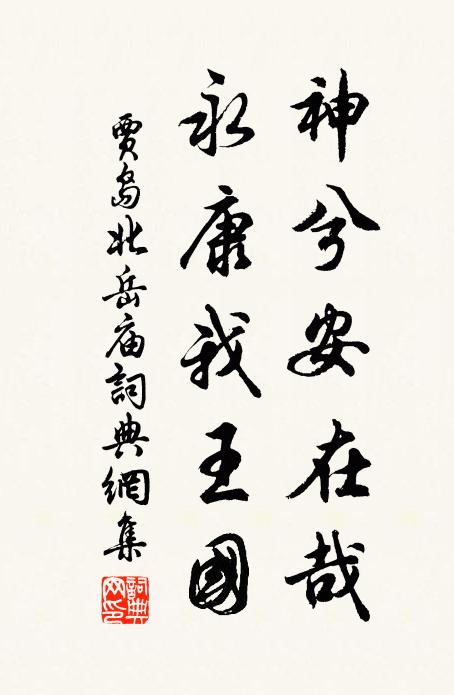 神兮安在哉
永康我王國
賈島北岳庙詞典網集
詞典
网印